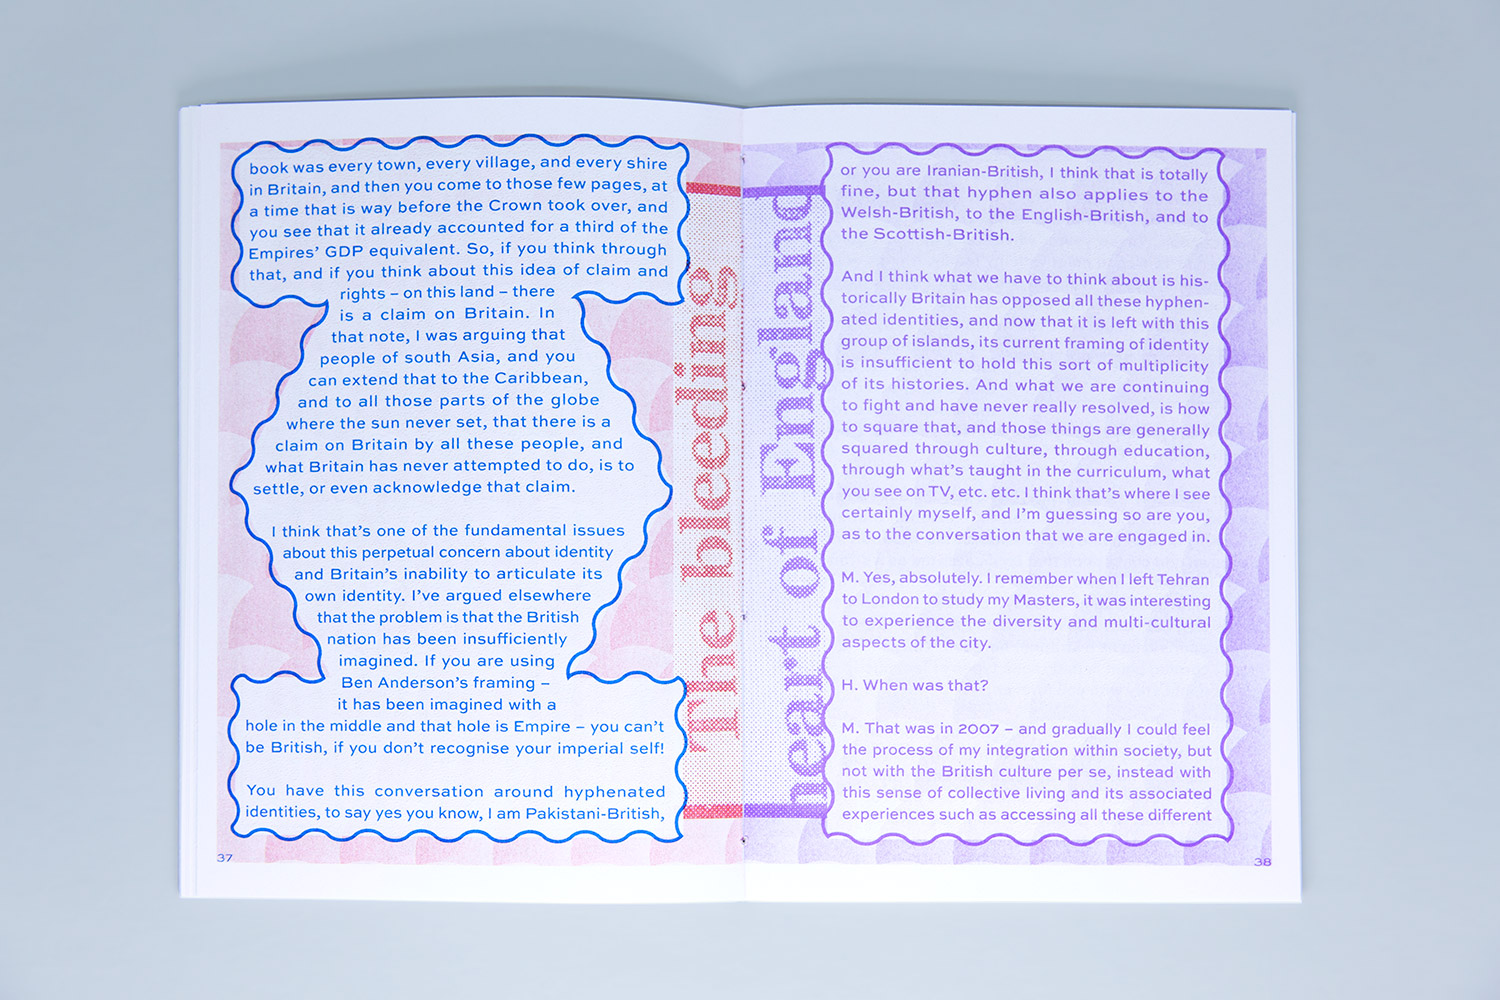 book was every town, every village, and every shire
in Britain, and then you come to those few pages, at
a time that is way before the Crown took over, and
you see that it already accounted for a third of the
Empires’ GDP equivalent. So, if you think through
that, and if you think about this idea of claim and
rights – on this land – there
is a claim on Britain. In
that note, I was arguing that
people of south Asia, and you
can extend that to the Caribbean,
and to all those parts of the globe
where the sun never set, that there is a
claim on Britain by all these people, and
what Britain has never attempted to do, is to
settle, or even acknowledge that claim.
I think that’s one of the fundamental issues
about this perpetual concern about identity
and Britain’s inability to articulate its
own identity. I’ve argued elsewhere
that the problem is that the British
nation has been insufficiently
imagined. If you are using
Ben Anderson’s framing –
it has been imagined with a
hole in the middle and that hole is Empire – you can’t
be British, if you don’t recognise your imperial self!
You have this conversation around hyphenated
identities, to say yes you know, I am Pakistani-British,
37
The bleeding
heart of England
or you are Iranian-British, I think that is totally
fine, but that hyphen also applies to the
Welsh-British, to the English-British, and to
the Scottish-British.
And I think what we have to think about is his-
torically Britain has opposed all these hyphen-
ated identities, and now that it is left with this
group of islands, its current framing of identity
is insufficient to hold this sort of multiplicity
of its histories. And what we are continuing
to fight and have never really resolved, is how
to square that, and those things are generally
squared through culture, through education,
through what’s taught in the curriculum, what
you see on TV, etc. etc. I think that’s where I see
certainly myself, and I’m guessing so are you,
as to the conversation that we are engaged in.
M. Yes, absolutely. I remember when I left Tehran
to London to study my Masters, it was interesting
to experience the diversity and multi-cultural
aspects of the city.
H. When was that?
M. That was in 2007 – and gradually I could feel
the process of my integration within society, but
not with the British culture per se, instead with
this sense of collective living and its associated
experiences such as accessing all these different
38